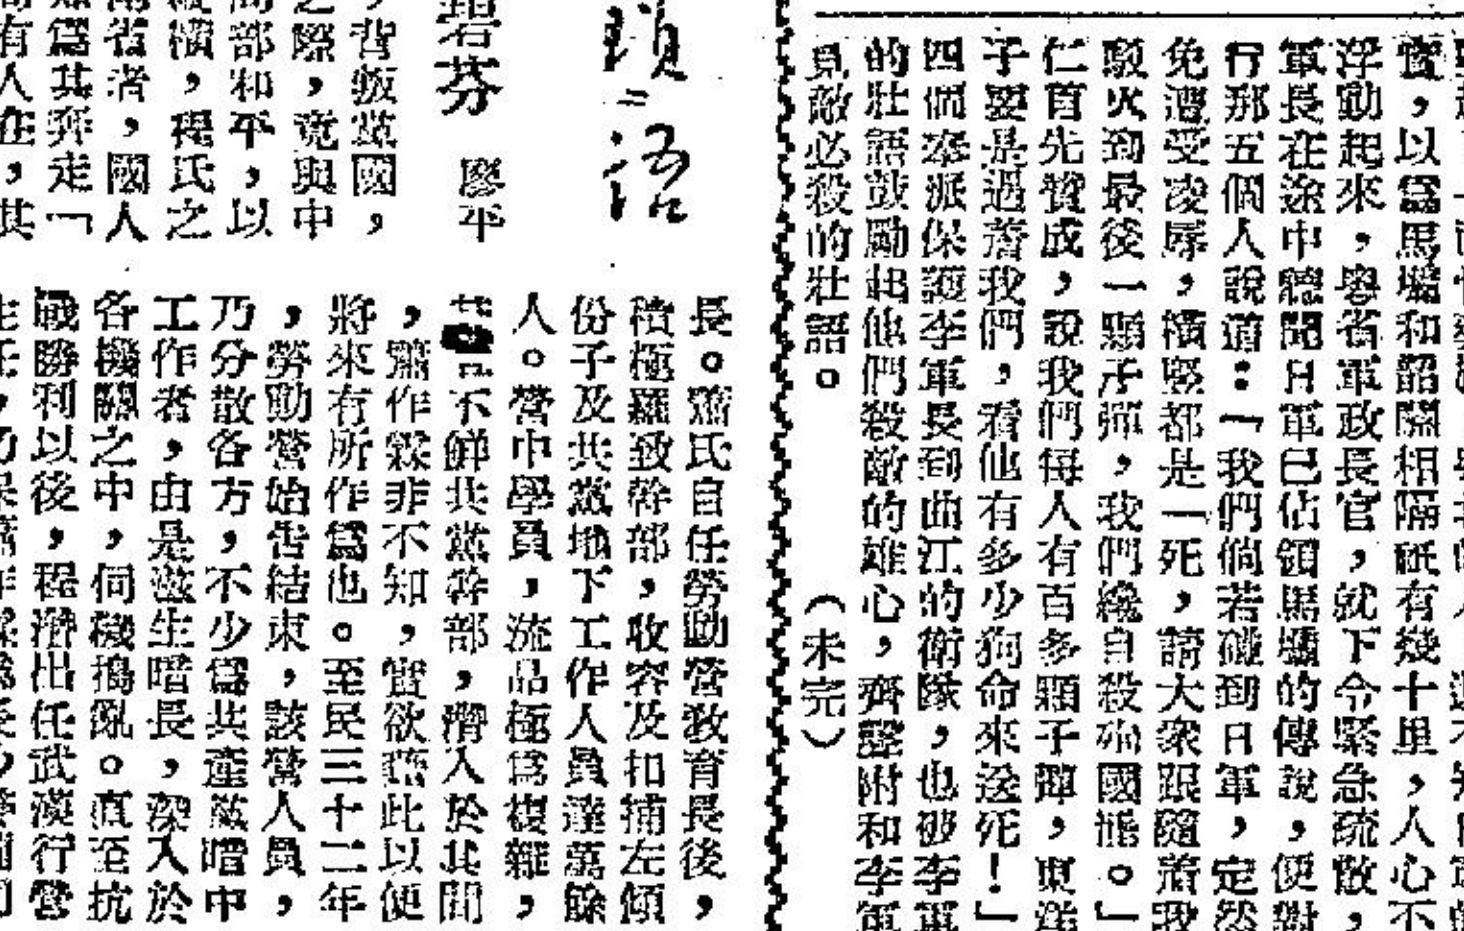 實，以爲馬壩和韶關相隔祇有幾十里，人心不
浮動起來，粤省軍政長官，就下令緊急疏散，
軍長在途中聽聞日軍已佔領馬壩的傳說，便對
行那五個人說道：「我們倘若碰到日軍，定然
免遭受凌辱，橫竪都是一死，請大衆跟隨着我
駁火到最後一顆子彈，我們纔自殺殉國罷。」
仁首先贊成，說我們每人有百多顆子彈，東洋
子要是遇着我們，看他有多少狗命來送死！」
四個奉派保護李軍長到曲江的衛隊，也被李軍
的壯語鼓勵起他們殺敵的雄心，齊聲附和李軍
見敵必殺的壯語。 （未完）
碧芬 廖平
，背叛黨國，
之際，竟與中
部和平，以
，程氏之
省者，國人
爲其奔走「
有人在，其
長。蕭氏自任勞動營教育長後，
積極羅致幹部，收容及扣捕左傾
份子及共黨地下工作人員達萬餘
人。營中學員，流品極爲複雜，
不鮮共黨幹部，潛入於其間
，蕭作霖非不知，實欲藉此以便
將來有所作爲也。至民三十二年
，勞動營始告結束，該營人員，
乃分散各方，不少爲共產黨暗中
工作者，由是滋生暗長，深入於
各機關之中，伺機搗亂。直至抗
戰勝利以後，程潛出任武漢行營